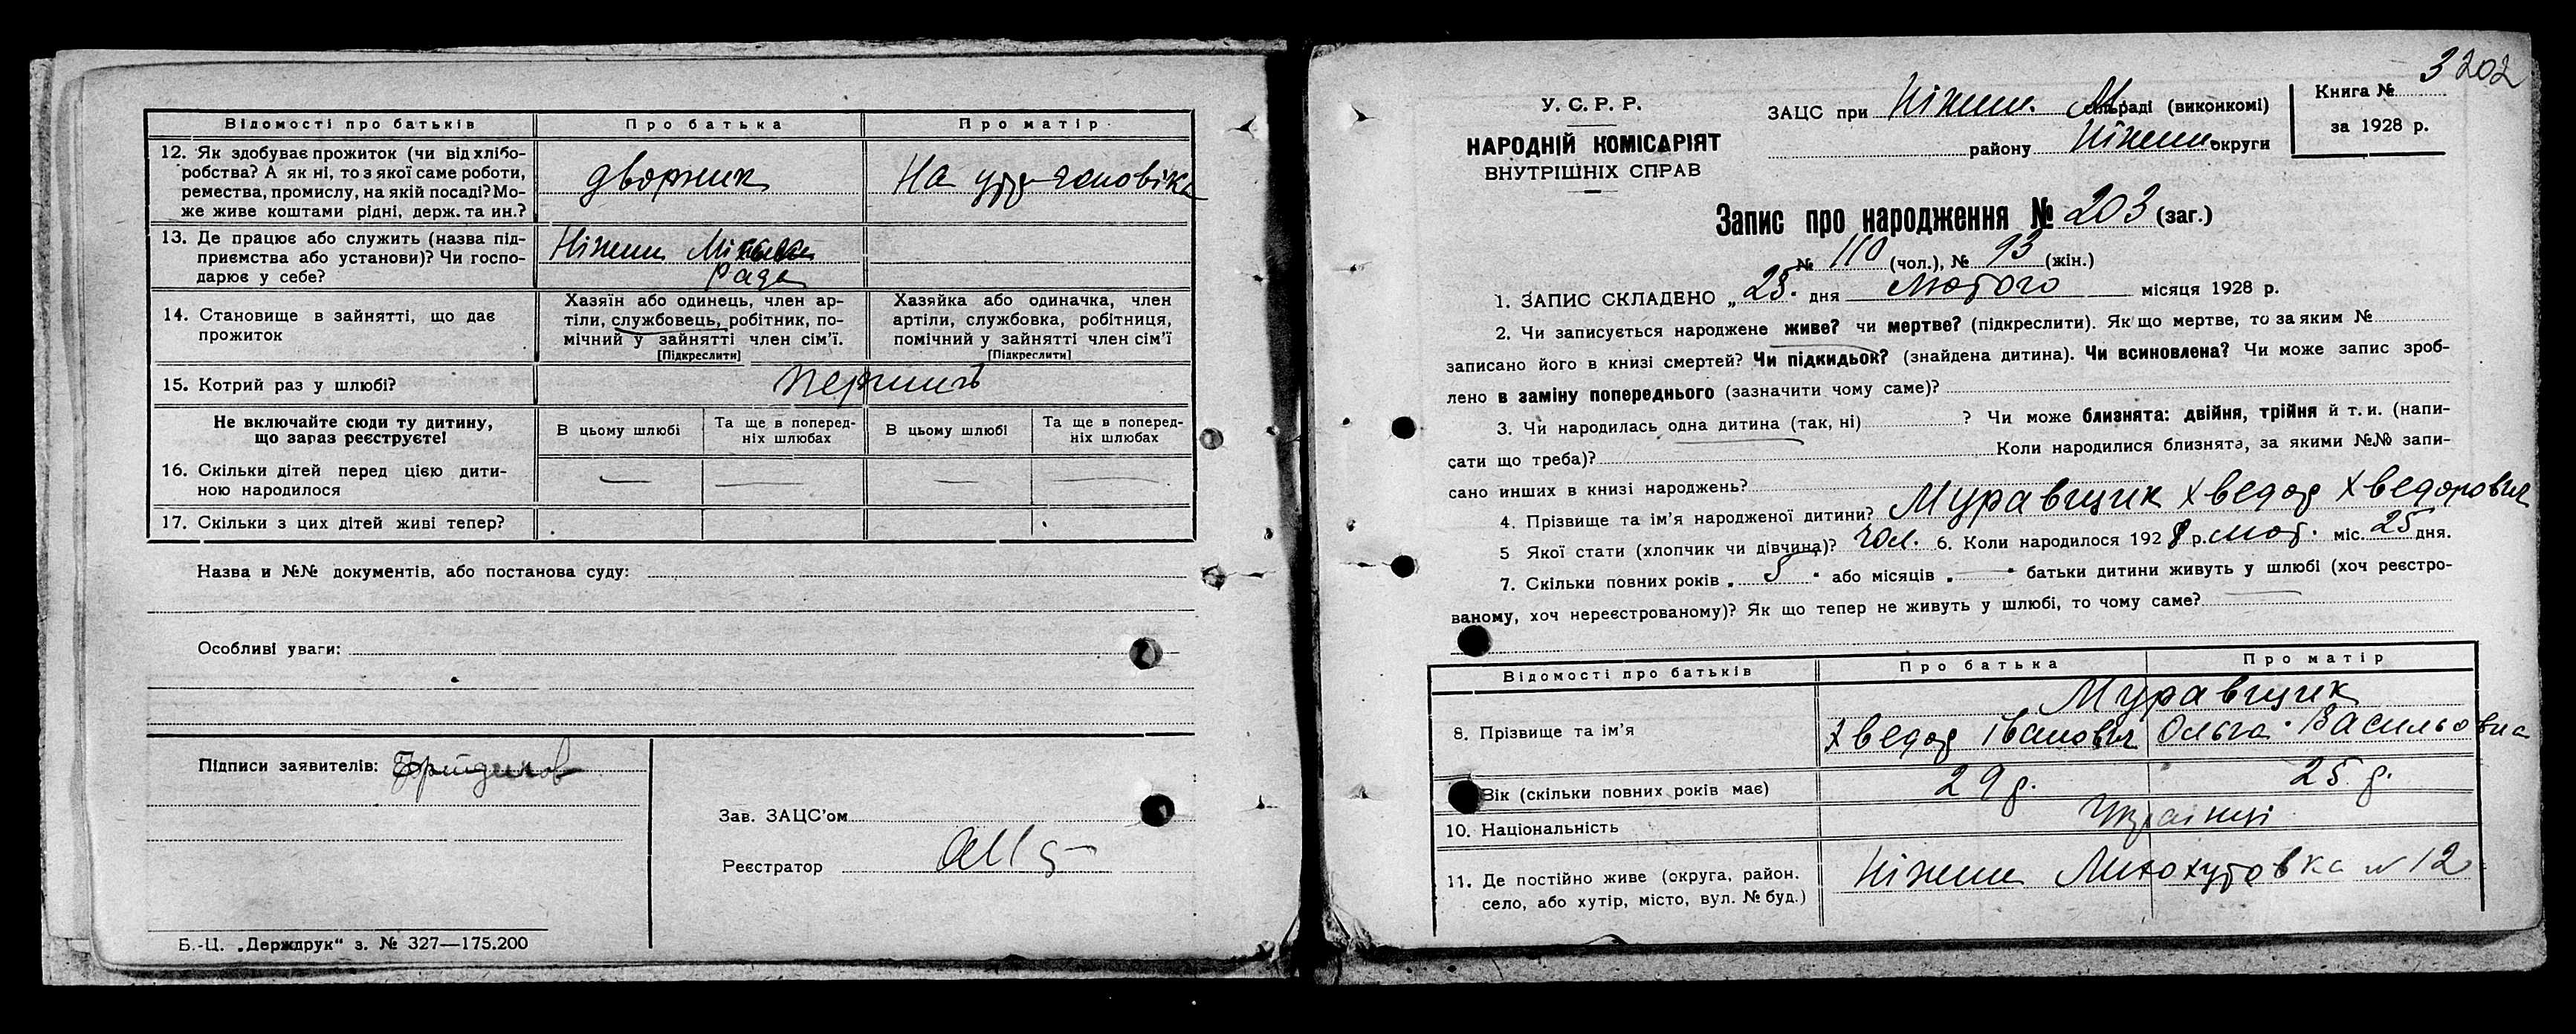 Відомості про батьків
Про батька
Про матір
12. Як здобуває прожиток (чи від хлібо-
робства? А як ні, то з якої саме роботи,
ремества, промислу, на якій посаді? Мо-
же живе коштами рідні, держ. та ин.?
дворник
На утр. чоловіка
13. Де працює або служить (назва під-
приємства або установи)? Чи госпо-
дарює у себе?
Ніжин Міська
Рада
14. Становище в зайнятті, що дає
прожиток
Хазяїн або одинець, член ар-
тіли, службовець, робітник, по-
мічний у зайнятті член сім'ї.
[Підкреслити]
Хазяйка або одиначка, член
артіли, службовка, робітниця,
помічний у зайнятті член сім'ї
[Підкреслити]
15. Котрий раз у шлюбі?
Не включайте сюди ту дитину,
що зараз реєструєте!
В цьому шлюбі
Та ще в поперед-
ніх шлюбах
В цьому шлюбі
Та ще в поперед-
ніх шлюбах
16. Скільки дітей перед цією дити-
ною народилося
— — — —
17. Скільки з цих дітей живі тепер?
Назва и №№ документів, або постанова суду:
Особливі уваги:
Підписи заявителів:
Зав. ЗАЦС'ом
Реєстратор
Б.-Ц. „Держдрук“ з. № 327—175.200
3 202
У. С. Р. Р.
НАРОДНІЙ КОМІСАРІЯТ
ВНУТРІШНІХ СПРАВ
ЗАЦС при Ніжин. М. раді (виконкомі)
району Ніжин округи
Книга №
за 1928 р.
Запис про народження № 203 (заг.)
№ 110 (чол.), № 93 (жін.)
1. ЗАПИС СКЛАДЕНО „ 25. дня Лютого місяця 1928 р.
2. Чи записується народжене живе? чи мертве? (підкреслити). Як що мертве, то за яким №
записано його в книзі смертей? Чи підкидьок? (знайдена дитина). Чи всиновлена? Чи може запис зроб-
лено в заміну попереднього (зазначити чому саме)?
3. Чи народилась одна дитина (так, ні) ? Чи може близнята: двійня, трійня й т. и. (напи-
сати що треба)? Коли народилися близнята, за якими №№ запи-
сано инших в книзі народжень?
4. Прізвище та ім'я народженої дитини? Муравщик Хведор Хведорович
5 Якої стати (хлопчик чи дівчина)? Чол. 6. Коли народилося 1928 р. лют. міс. 25 дня.
7. Скільки повних років „ 5 “ або місяців „ — “ батьки дитини живуть у шлюбі (хоч реєстро-
ваному, хоч нереєстрованому)? Як що тепер не живуть у шлюбі, то чому саме?
Відомості про батьків
Про батька
Про матір
8. Прізвище та ім'я
Муравщик
Хведор Іванович
Ольга Васильовна
Вік (скільки повних років має)
29 р.
25 р.
10. Національність
Українці
11. Де постійно живе (округа, район.
село, або хутір, місто, вул. № буд.)
Ніжин № 12